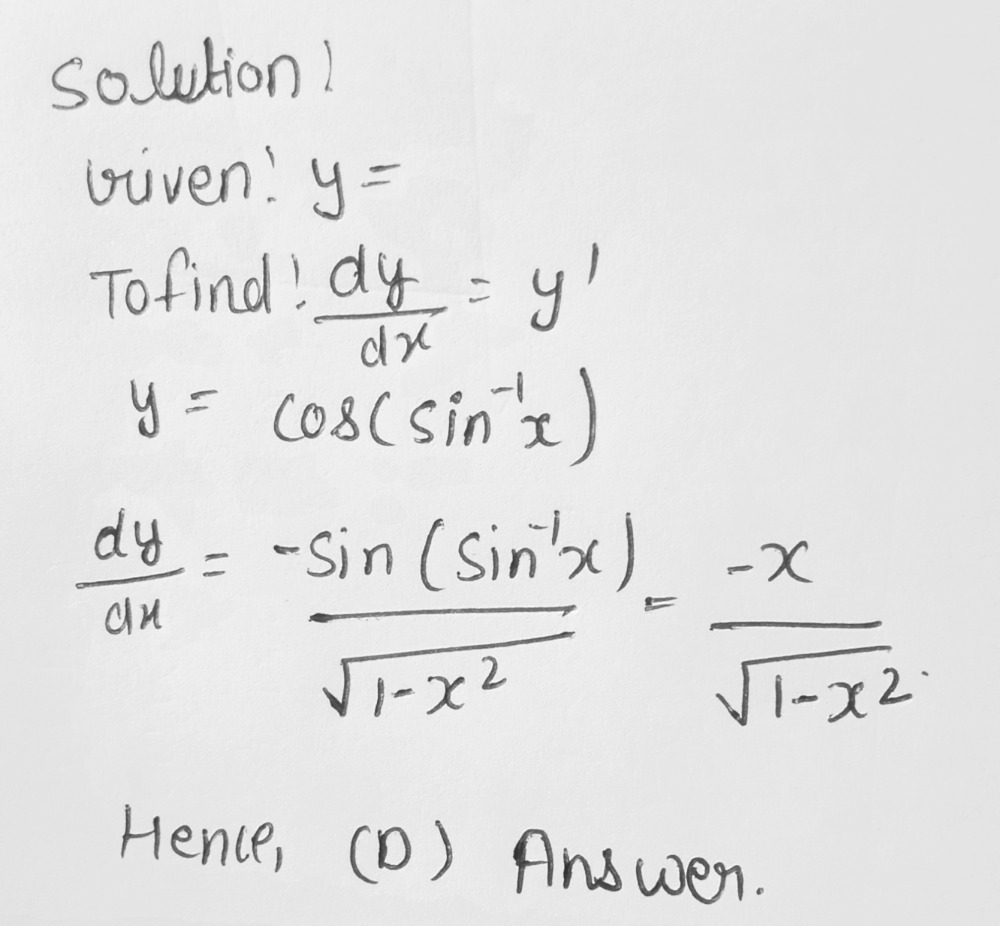 Solution!
Given! y =
To find! dy/dx = y'
y = cos(sin⁻¹x)
dy/dx = -sin(sin⁻¹x)/√1-x² = -x/√1-x².
Hence, (D) Answer.